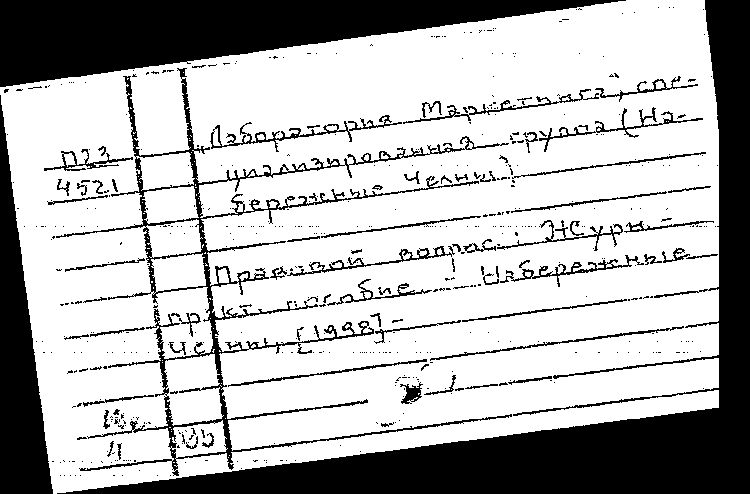 П23
4521
„Лаборатория Маркетинга", спе-
циализированная группа (На-
бережные Челны)
Правовой вопрос : Журн. -
практ. пособие. - Набережные
Челны, [1998] -